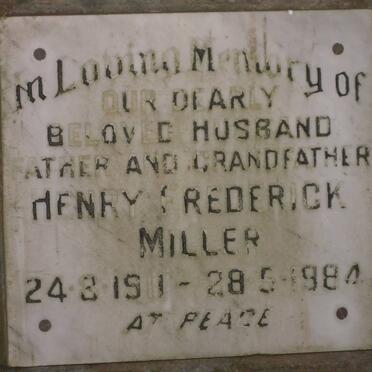 In Loving Memory of
OUR DEARLY
BELOVED HUSBAND
FATHER AND GRANDFATHER
HENRY FREDERICK
MILLER
24·3·1911 - 28·5·1984
AT PEACE